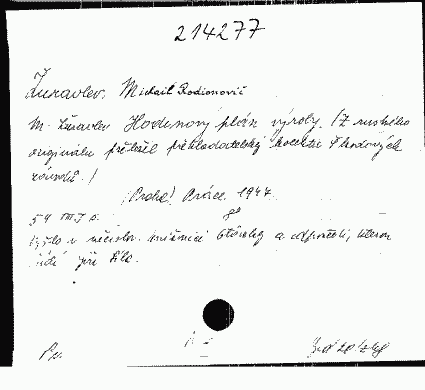 214277
Žuravlev, Michail Rodionovič
M. Žuravlev Hodinový plán výroby. /Z ruského
originálu přeložil překladatelský kolektiv Škodových
závodů./
/Praha/ Práce 1947.
54 III s. 8°
Vyšlo v nečíslov. knižnici Otázky a odpovědi, kterou
řídí Jiří Síla.